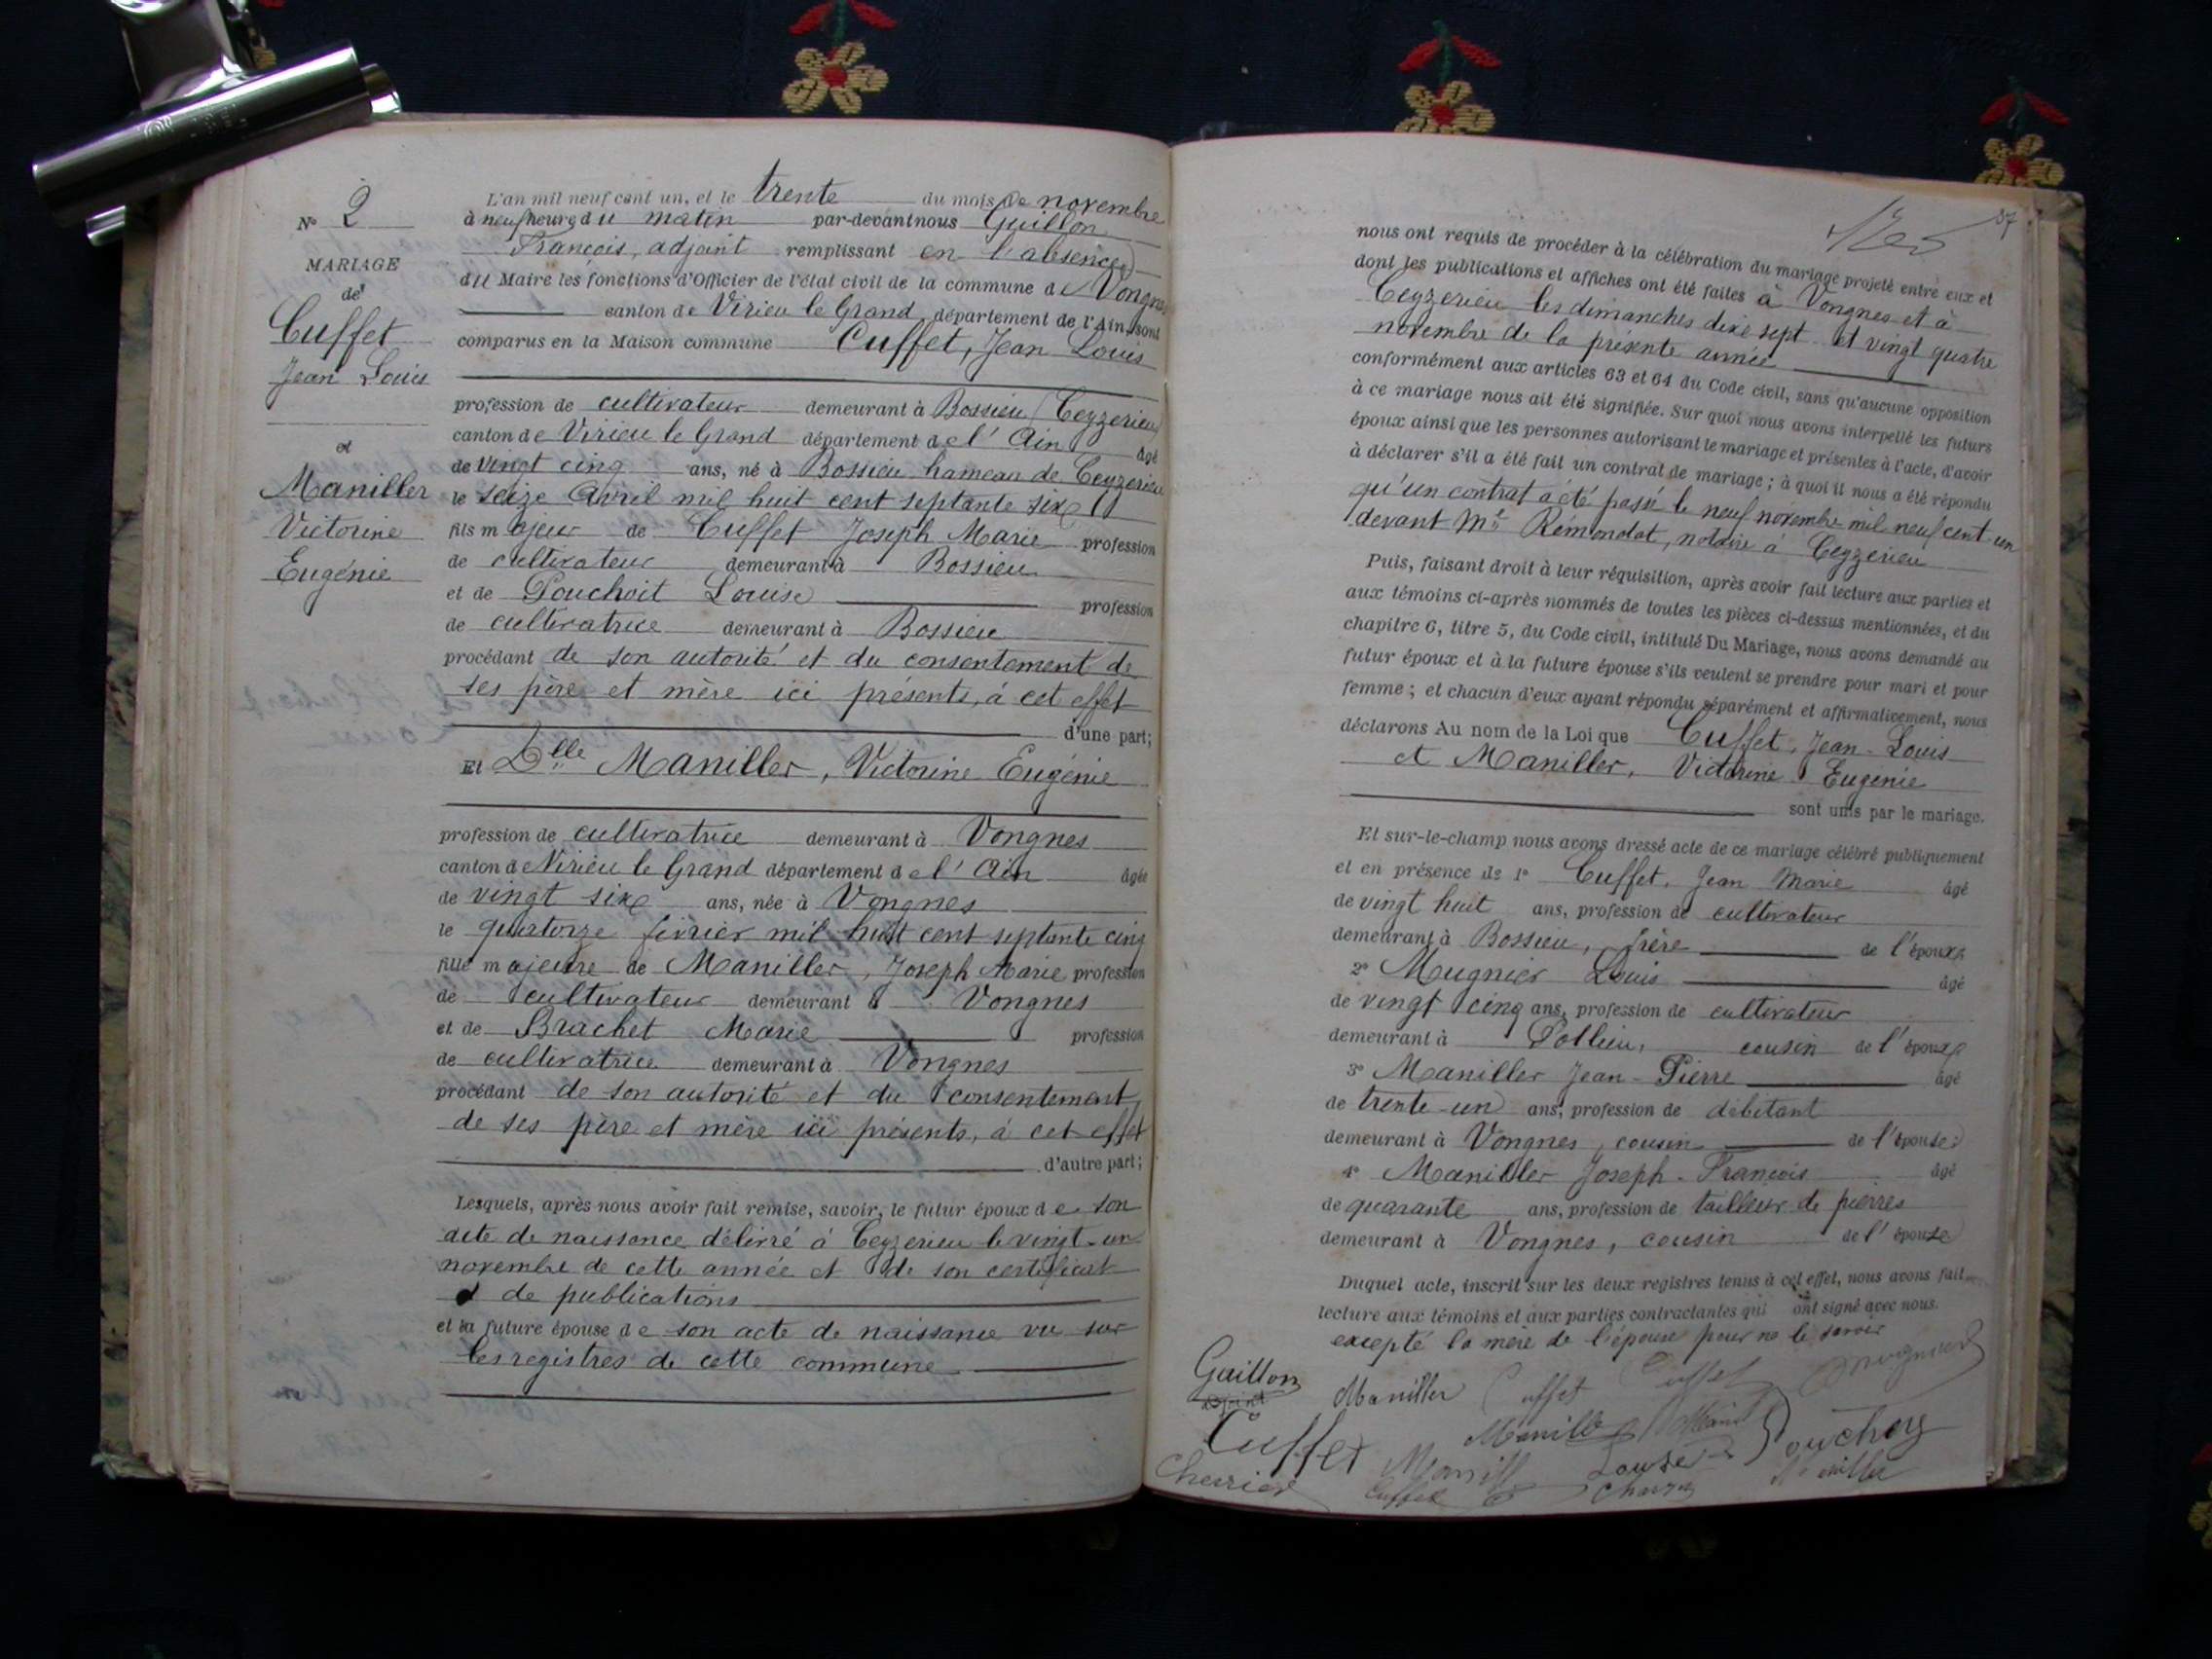 N° 2
MARIAGE
de
Cuffet
Jean Louis
et
Maniller
Victorine
Eugénie
L'an mil neuf cent un, et le trente du mois de novembre
à neuf heures du matin par-devant nous Guillon
François, adjoint remplissant en l'absence
du Maire les fonctions d'Officier de l'état civil de la commune de Vongnes
canton de Virieu le Grand, département de l'Ain, sont
comparus en la Maison commune Cuffet, Jean Louis
profession de cultivateur demeurant à Bossieu (Ceyzerieu)
canton de Virieu le Grand département de l'Ain âgé
de vingt cinq ans, né à Bossieu hameau de Ceyzerieu
le seize Avril mil huit cent septante six
fils majeur de Cuffet Joseph Marie profession
de cultivateur demeurant à Bossieu
et de Pouchoit Louise profession
de cultivatrice demeurant à Bossieu
procédant de son autorité et du consentement de
ses père et mère ici présents, à cet effet
d'une part;
Et Dlle Maniller, Victorine Eugénie
profession de cultivatrice demeurant à Vongnes
canton de Virieu le Grand département de l'Ain âgée
de vingt six ans, née à Vongnes
le quatorze février mil huit cent septante cinq
fille majeure de Maniller, Joseph Marie profession
de cultivateur demeurant à Vongnes
et de Brachet Marie profession
de cultivatrice demeurant à Vongnes
procédant de son autorité et du consentement
de ses père et mère ici présents, à cet effet
d'autre part;
Lesquels, après nous avoir fait remise, savoir, le futur époux de son
acte de naissance délivré à Ceyzerieu le vingt-un
novembre de cette année et de son certificat
de publications
et la future épouse de son acte de naissance vu sur
les registres de cette commune
37
nous ont requis de procéder à la célébration du mariage projeté entre eux et
dont les publications et affiches ont été faites à Vongnes et à
Ceyzerieu les dimanches dix sept et vingt quatre
novembre de la présente année
conformément aux articles 63 et 64 du Code civil, sans qu'aucune opposition
à ce mariage nous ait été signifiée. Sur quoi nous avons interpellé les futurs
époux ainsi que les personnes autorisant le mariage et présentes à l'acte, d'avoir
à déclarer s'il a été fait un contrat de mariage; à quoi il nous a été répondu
qu'un contrat a été passé le neuf novembre mil neuf cent un
devant Me Rémondat, notaire à Ceyzerieu
Puis, faisant droit à leur réquisition, après avoir fait lecture aux parties et
aux témoins ci-après nommés de toutes les pièces ci-dessus mentionnées, et du
chapitre 6, titre 5, du Code civil, intitulé Du Mariage, nous avons demandé au
futur époux et à la future épouse s'ils veulent se prendre pour mari et pour
femme; et chacun d'eux ayant répondu séparément et affirmativement, nous
déclarons Au nom de la Loi que Cuffet, Jean-Louis
et Maniller, Victorine Eugénie
sont unis par le mariage.
Et sur-le-champ nous avons dressé acte de ce mariage célébré publiquement
et en présence de 1° Cuffet, Jean Marie âgé
de vingt huit ans, profession de cultivateur
demeurant à Bossieu, frère de l'époux
2° Mugnier Louis âgé
de vingt cinq ans, profession de cultivateur
demeurant à Pollieu, cousin de l'époux
3° Maniller Jean-Pierre âgé
de trente-un ans, profession de débitant
demeurant à Vongnes, cousin de l'épouse;
4° Maniller Joseph-François âgé
de quarante ans, profession de tailleur de pierres
demeurant à Vongnes, cousin de l'épouse
Duquel acte, inscrit sur les deux registres tenus à cet effet, nous avons fait
lecture aux témoins et aux parties contractantes qui ont signé avec nous.
excepté la mère de l'épouse pour ne le savoir
Guillon Maniller Cuffet Cuffet Mugnier
adjoint
Cuffet Maniller Louise Pouchoy